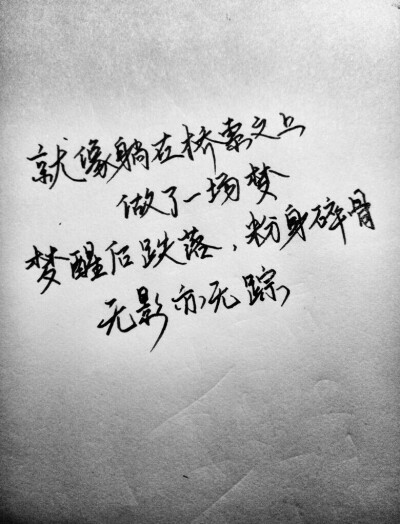 就像躺在桥索之上
做了一场梦
梦醒后跌落，粉身碎骨
无影亦无踪